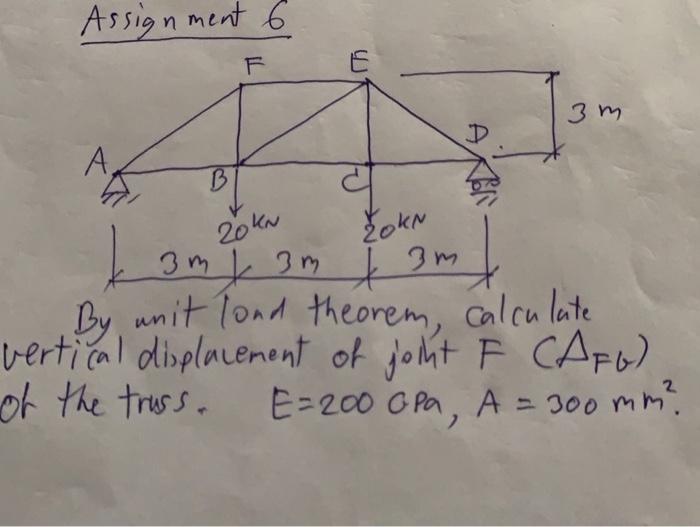 Assignment 6
F E
3 m
A D
B C
20 KN 20 KN
3 m 3 m 3 m
By unit load theorem, calculate
vertical displacement of joint F (ΔFV)
of the truss. E=200 GPa, A = 300 mm².